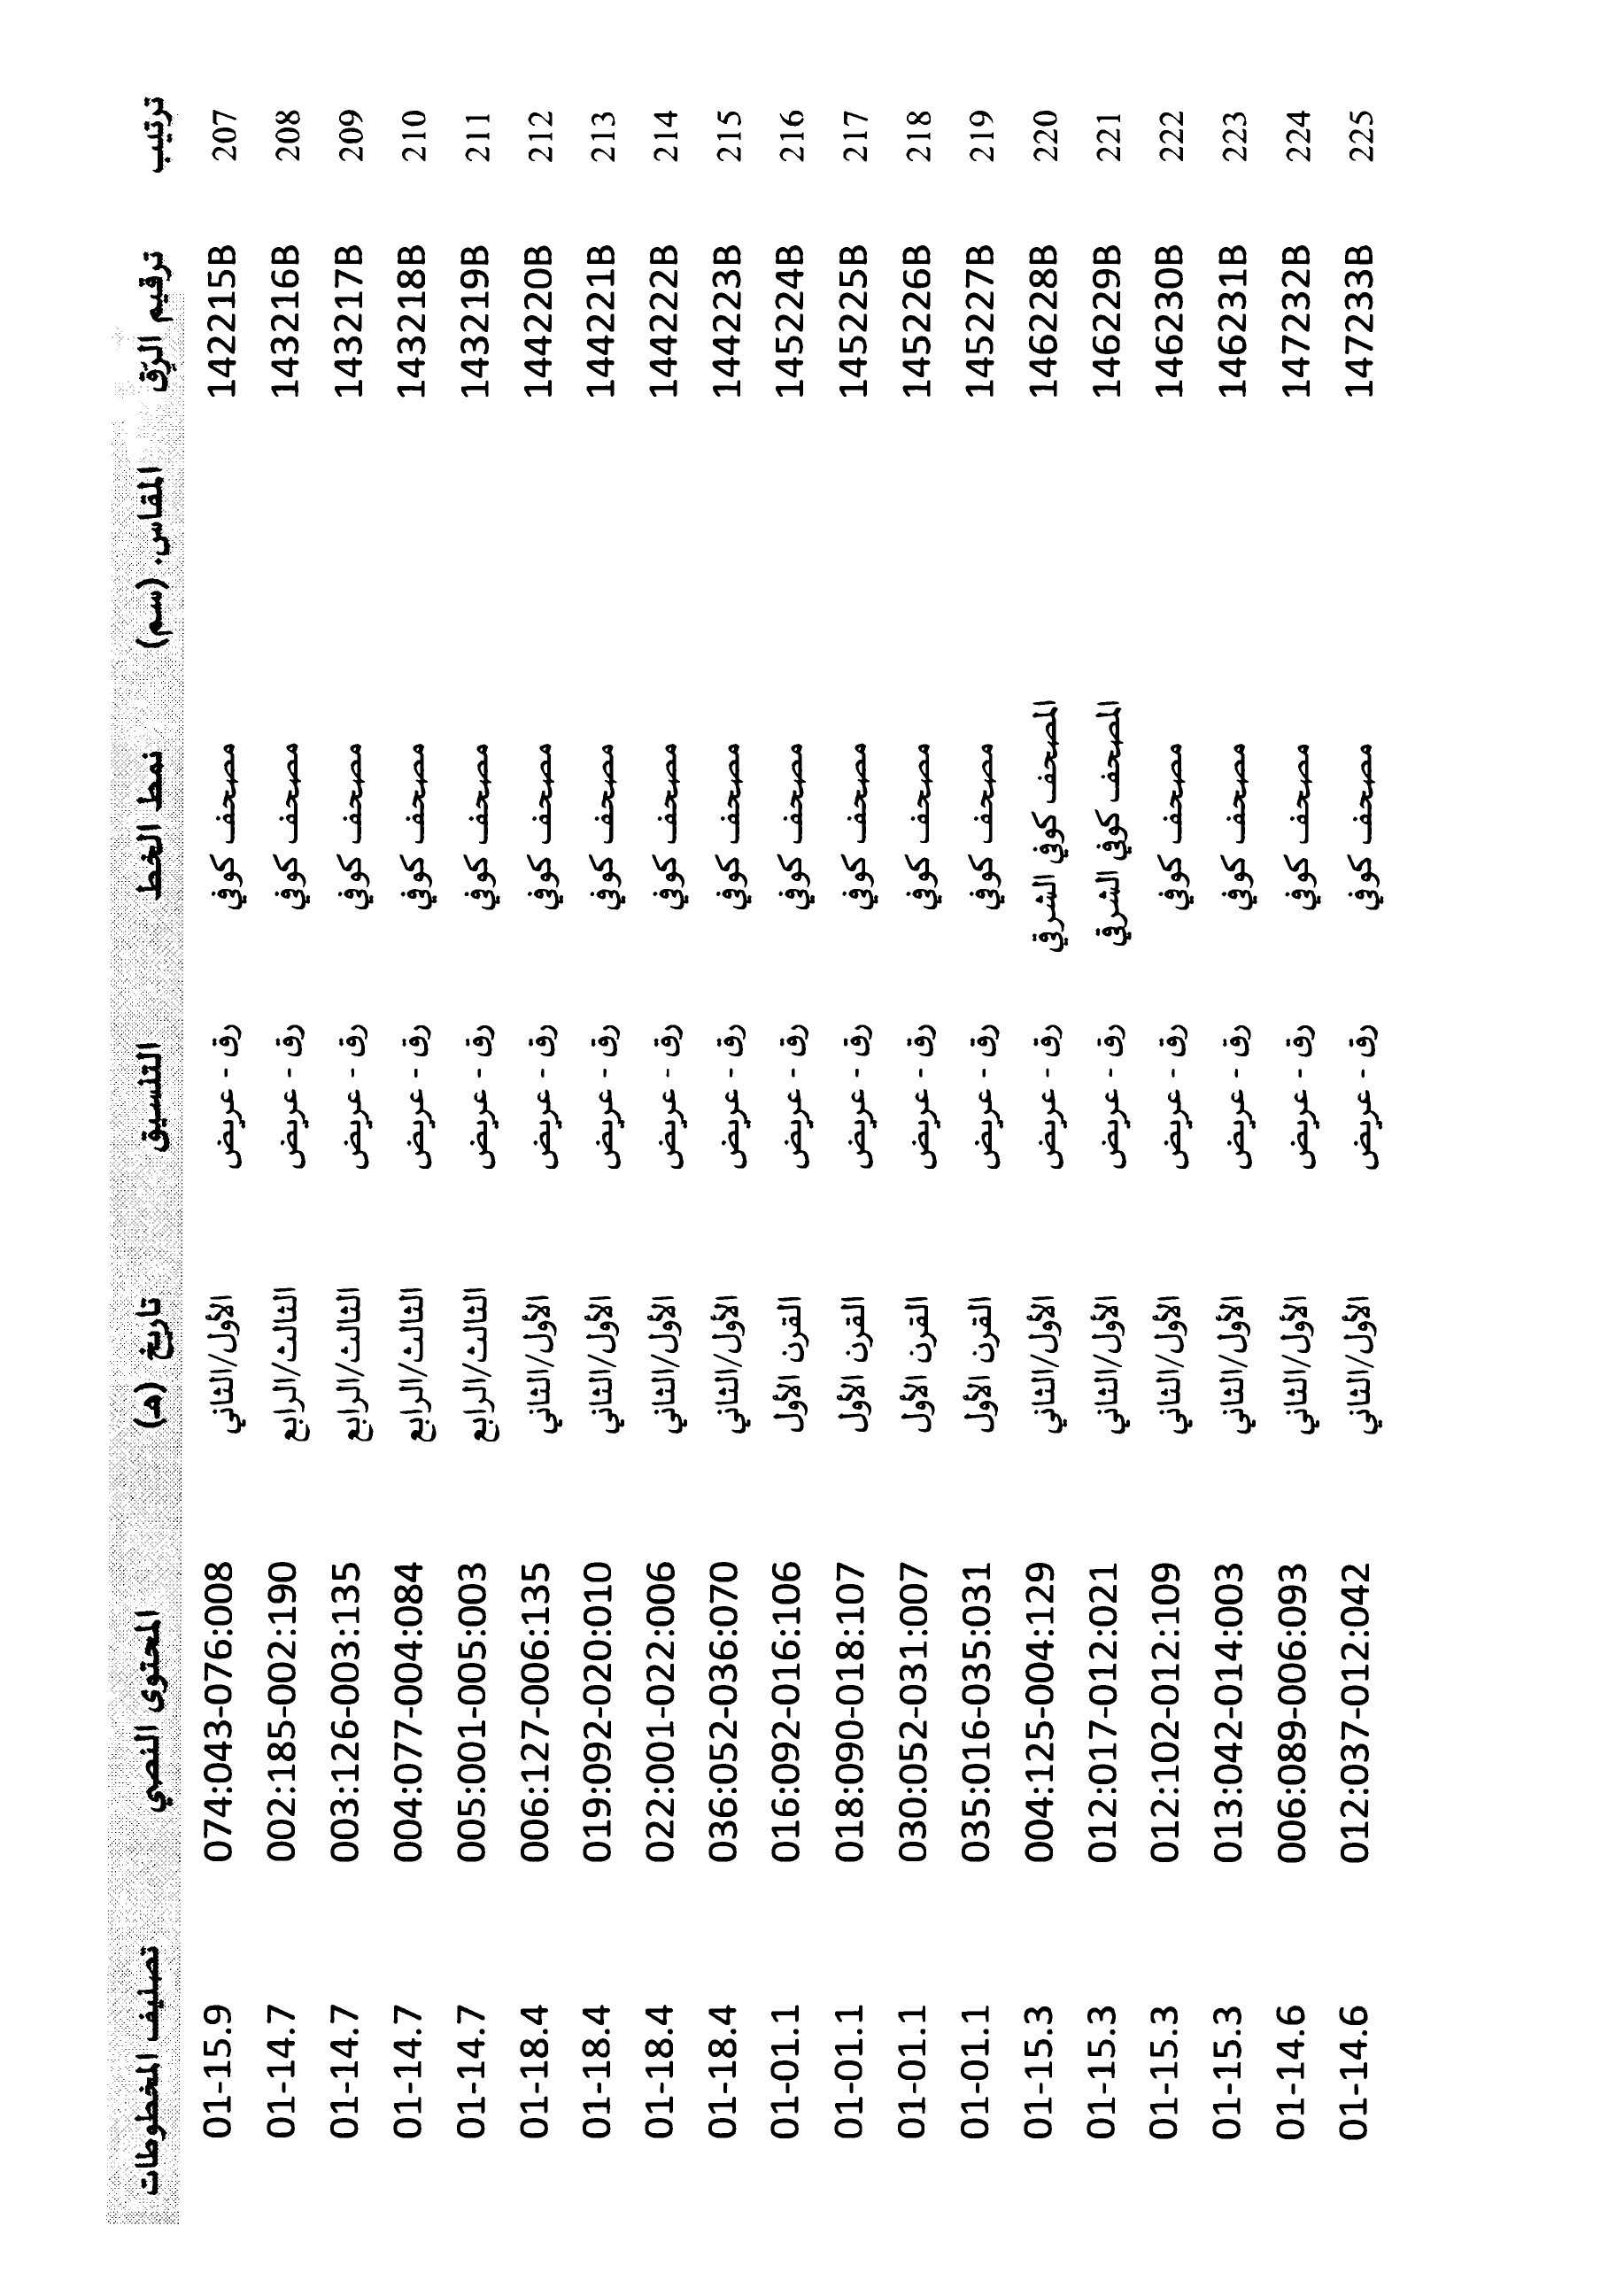 ترتيب ترقيم الرّق المقاس. (سم) نمط الخط التنسيق تاريخ (هـ) المحتوى النصي تصنيف المخطوطات
207 142215B مصحف كوفي رق - عريض الأول/الثاني 074:043-076:008 01-15.9
208 143216B مصحف كوفي رق - عريض الثالث/الرابع 002:185-002:190 01-14.7
209 143217B مصحف كوفي رق - عريض الثالث/الرابع 003:126-003:135 01-14.7
210 143218B مصحف كوفي رق - عريض الثالث/الرابع 004:077-004:084 01-14.7
211 143219B مصحف كوفي رق - عريض الثالث/الرابع 005:001-005:003 01-14.7
212 144220B مصحف كوفي رق - عريض الأول/الثاني 006:127-006:135 01-18.4
213 144221B مصحف كوفي رق - عريض الأول/الثاني 019:092-020:010 01-18.4
214 144222B مصحف كوفي رق - عريض الأول/الثاني 022:001-022:006 01-18.4
215 144223B مصحف كوفي رق - عريض الأول/الثاني 036:052-036:070 01-18.4
216 145224B مصحف كوفي رق - عريض القرن الأول 016:092-016:106 01-01.1
217 145225B مصحف كوفي رق - عريض القرن الأول 018:090-018:107 01-01.1
218 145226B مصحف كوفي رق - عريض القرن الأول 030:052-031:007 01-01.1
219 145227B مصحف كوفي رق - عريض القرن الأول 035:016-035:031 01-01.1
220 146228B المصحف كوفي الشرقي رق - عريض الأول/الثاني 004:125-004:129 01-15.3
221 146229B المصحف كوفي الشرقي رق - عريض الأول/الثاني 012:017-012:021 01-15.3
222 146230B مصحف كوفي رق - عريض الأول/الثاني 012:102-012:109 01-15.3
223 146231B مصحف كوفي رق - عريض الأول/الثاني 013:042-014:003 01-15.3
224 147232B مصحف كوفي رق - عريض الأول/الثاني 006:089-006:093 01-14.6
225 147233B مصحف كوفي رق - عريض الأول/الثاني 012:037-012:042 01-14.6